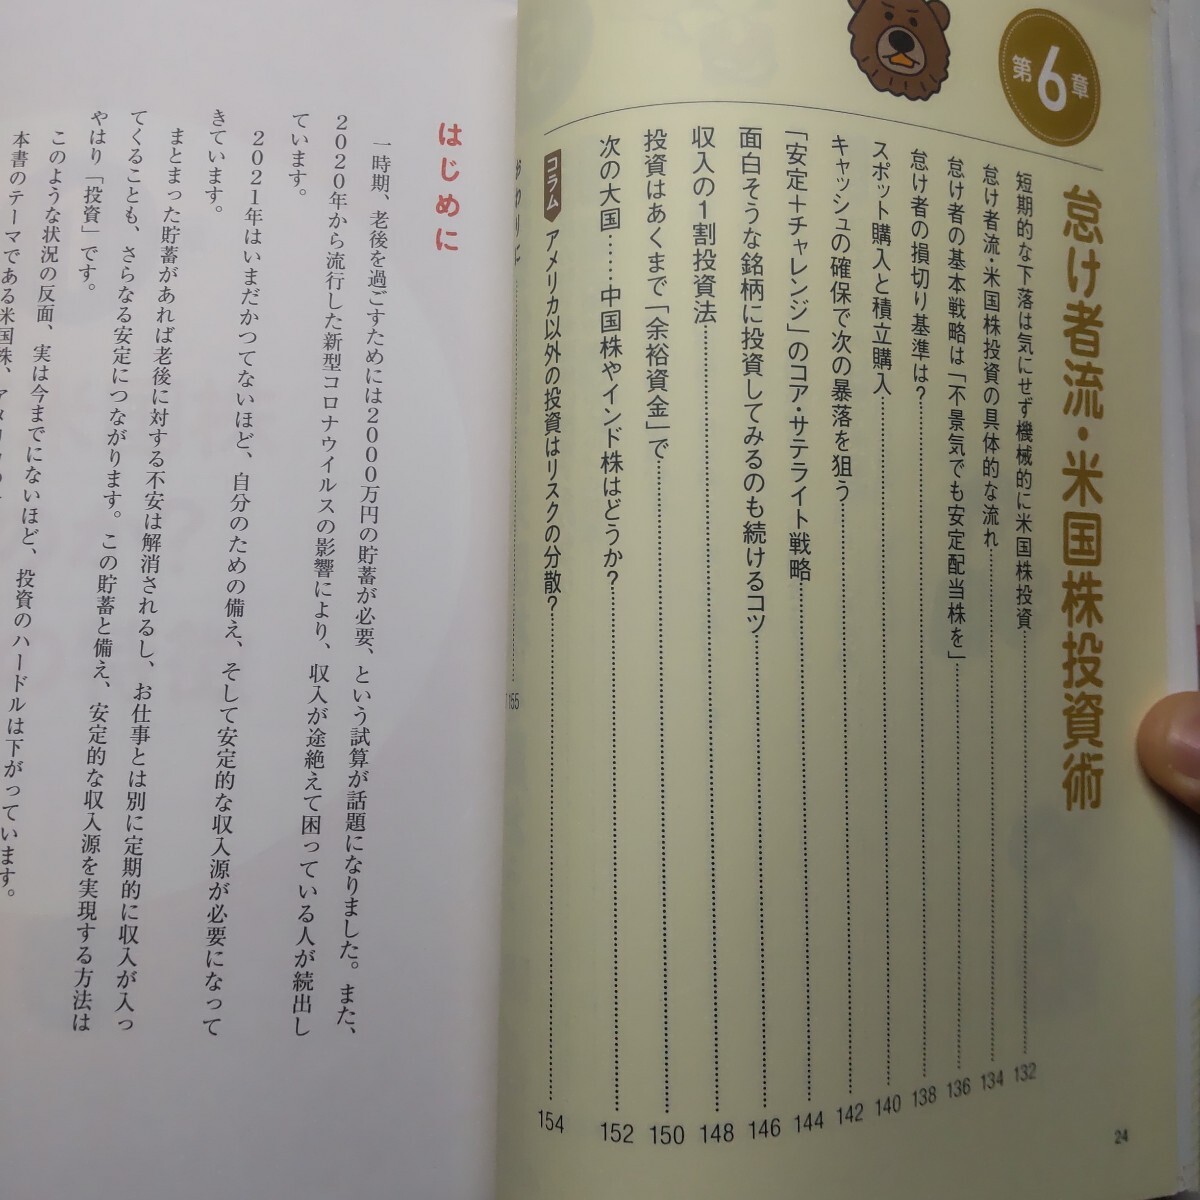 第6章
怠け者流・米国株投資術
短期的な下落は気にせず機械的に米国株投資 132
怠け者流・米国株投資の具体的な流れ 134
怠け者の基本戦略は「不景気でも安定配当株を」 136
怠け者の損切り基準は? 138
スポット購入と積立購入 140
キャッシュの確保で次の暴落を狙う 142
「安定+チャレンジ」のコア・サテライト戦略 144
面白そうな銘柄に投資してみるのも続けるコツ 146
収入の1割投資法 148
投資はあくまで「余裕資金」で 150
次の大国……中国株やインド株はどうか? 152
コラム アメリカ以外の投資はリスクの分散? 154
おわりに 155
24
はじめに
一時期、老後を過ごすためには2000万円の貯蓄が必要、という試算が話題になりました。また、
2020年から流行した新型コロナウイルスの影響により、収入が途絶えて困っている人が続出し
ています。
2021年はいまだかつてないほど、自分のための備え、そして安定的な収入源が必要になって
きています。
まとまった貯蓄があれば老後に対する不安は解消されるし、お仕事とは別に定期的に収入が入っ
てくることも、さらなる安定につながります。この貯蓄と備え、安定的な収入源を実現する方法は
やはり「投資」です。
このような状況の反面、実は今までにないほど、投資のハードルは下がっています。
本書のテーマである米国株、